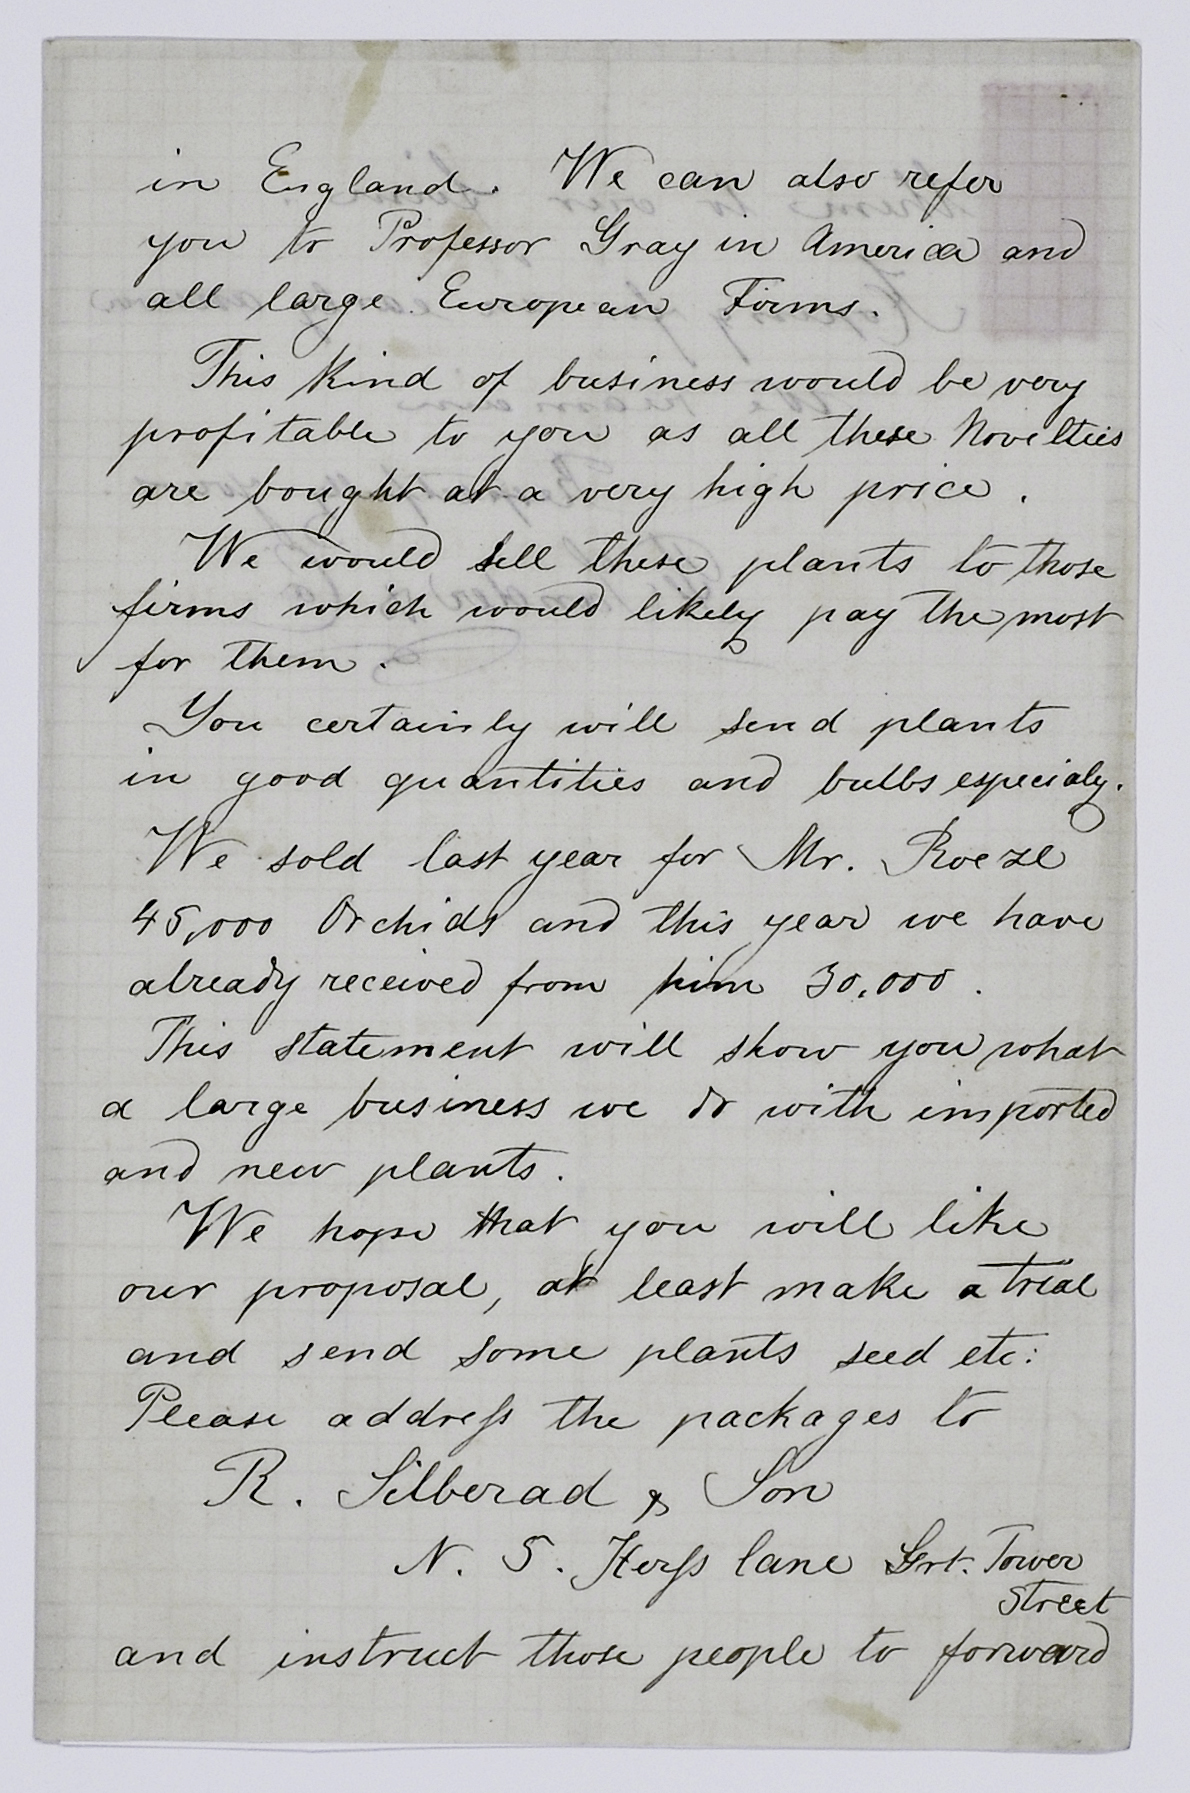 in England. We can also refer
you to Professor Gray in America and
all large European Firms.
This kind of business would be very
profitable to you as all these Novelties
are bought at a very high price.
We would sell these plants to those
firms which would likely pay the most
for them.
You certainly will send plants
in good quantities and bulbs especialy.
We sold last year for Mr. Roezl
45,000 Orchids and this year we have
already received from him 30.000.
This statement will show you what
a large business we do with imported
and new plants.
We hope that you will like
our proposal, at least make a trial
and send some plants seed etc:
Please address the packages to
R. Silberad & Son
N. 5. lane Grt. Tower
Street
and instruct those people to forward